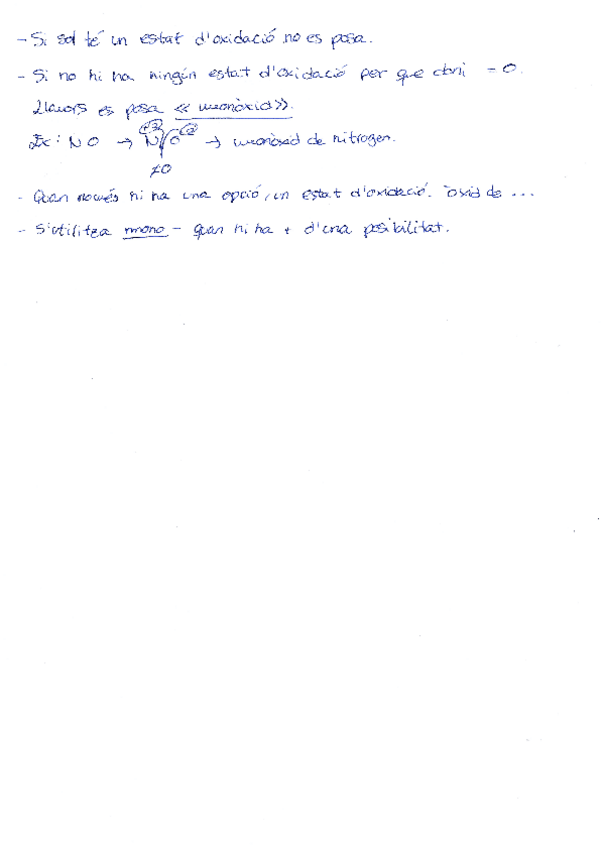 - Si sol té un estat d'oxidació no es posa.
- Si no hi ha ningún estat d'oxidació per que doni = 0.
Llavors es posa << monòxid>>.
Ex: NO → N O → monòxid de nitrogen.
≠0
- Quan només hi ha una opció, un estat d'oxidació. òxid de ...
- S'utilitza mono - quan hi ha + d'una posibilitat.